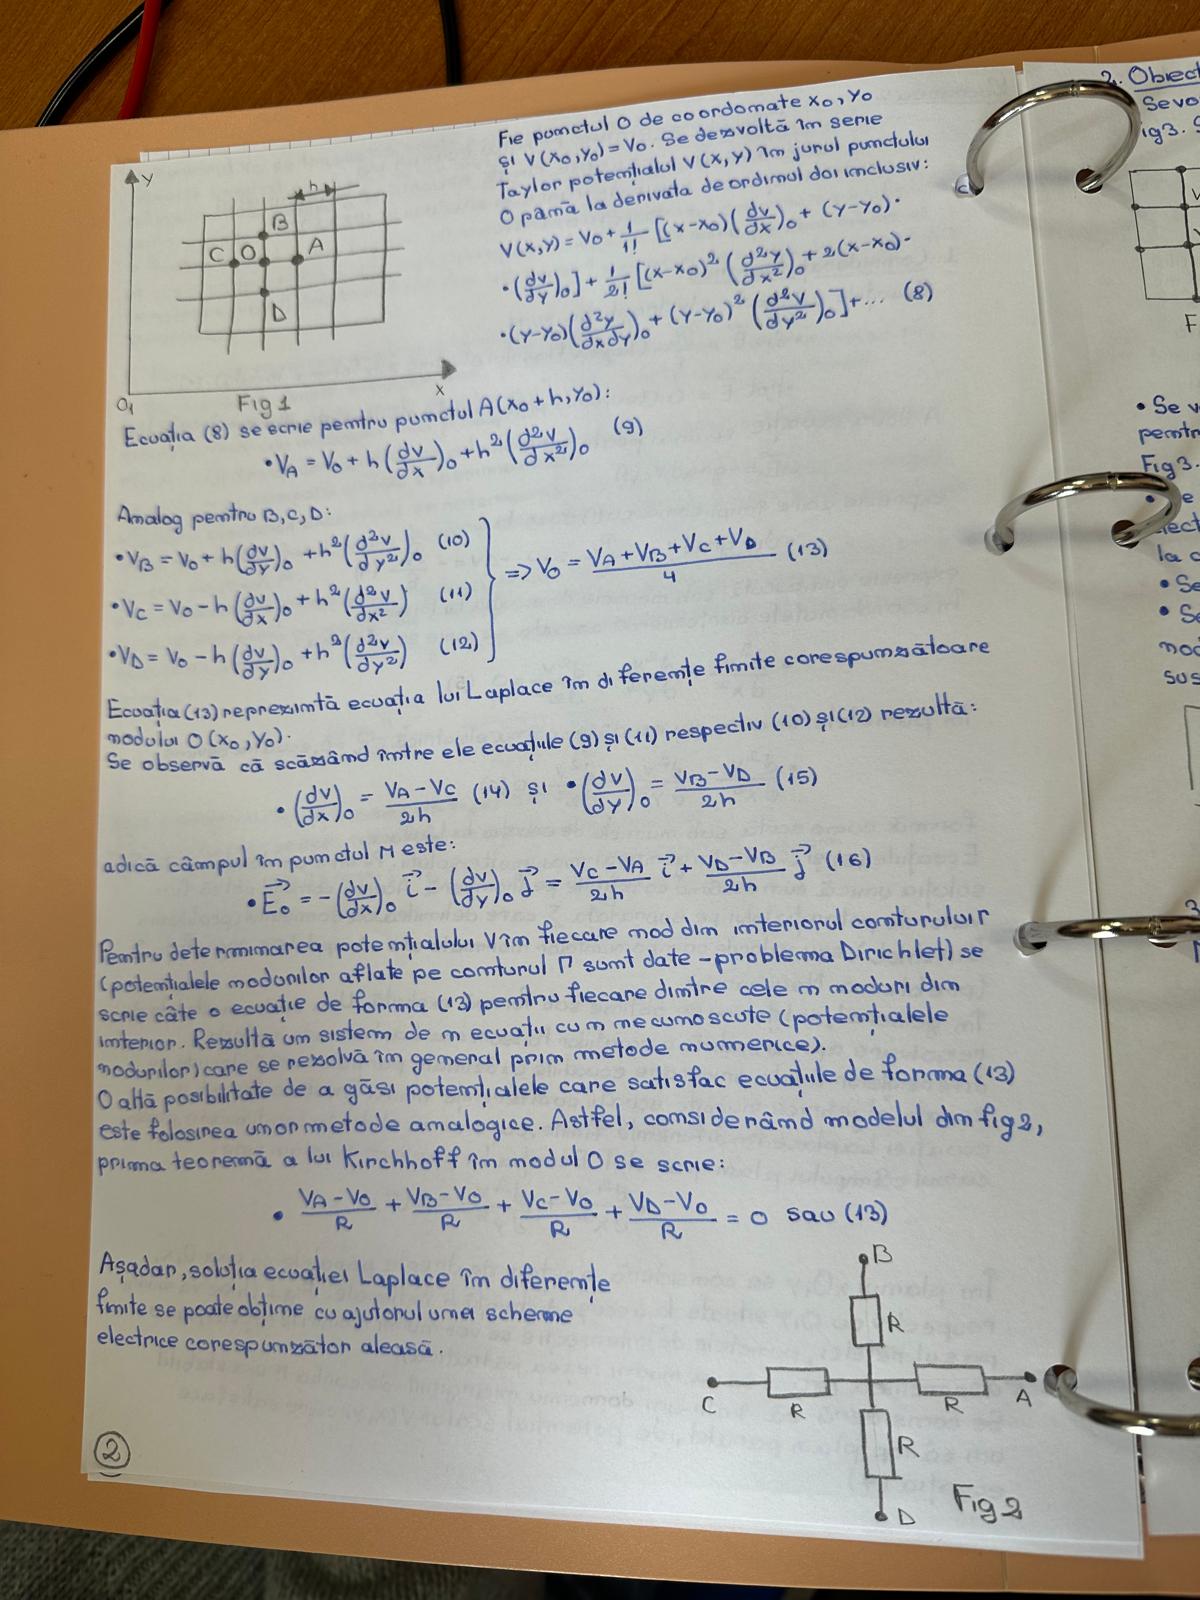 Fie punctul O de coordomate x₀, y₀
și V(x₀, y₀) = V₀. Se dezvoltă îm serie
Taylor potențialul V(x, y) îm jurul punctului
O pâmă la derivata de ordimul doi imclusiv:
V(x, y) = V₀ + 1/1! [(x-x₀)(dv/dx)₀ + (y-y₀)·
·(dv/dy)₀] + 1/2! [(x-x₀)² (d²y/dx²)₀ + 2(x-x₀)·
·(y-y₀)(d²y/dxdy)₀ + (y-y₀)² (d²v/dy²)₀] + ... (8)
y
h
B
C O A
D
O₁
x
Fig 1
Ecuația (8) se scrie pemtru pumctul A(x₀+h, y₀):
• V_A = V₀ + h(dv/dx)₀ + h²(d²v/dx²)₀ (9)
Amalog pemtru B, C, D:
• V_B = V₀ + h(dv/dy)₀ + h²(d²v/dy²)₀ (10)
• V_C = V₀ - h(dv/dx)₀ + h²(d²v/dx²) (11)
• V_D = V₀ - h(dv/dy)₀ + h²(d²v/dy²) (12)
=> V₀ = (V_A + V_B + V_C + V_D)/4 (13)
Ecuația (13) reprezimtă ecuația lui Laplace îm diferemțe fimite corespumzătoare
modului O(x₀, y₀).
Se observă că scăzâmd îmtre ele ecuațiile (9) și (11) respectiv (10) și (12) rezultă:
• (dv/dx)₀ = (V_A - V_C)/2h (14) și • (dv/dy)₀ = (V_B - V_D)/2h (15)
adică câmpul îm pumctul M este:
• E⃗₀ = -(dv/dx)₀ i⃗ - (dv/dy)₀ j⃗ = (V_C - V_A)/2h i⃗ + (V_D - V_B)/2h j⃗ (16)
Pemtru determimarea potemțialului V îm fiecare mod dim imteriorul comturului Γ
(potemțialele modurilor aflate pe comturul Γ sumt date - problema Dirichlet) se
scrie câte o ecuație de forma (13) pemtru fiecare dimtre cele m moduri dim
imterior. Rezultă um sistem de m ecuații cu m mecumoscute (potemțialele
modurilor) care se rezolvă îm gemeral prim metode mumerice).
O altă posibilitate de a găsi potemțialele care satisfac ecuațiile de forma (13)
este folosirea umor metode amalogice. Astfel, comsiderâmd modelul dim fig 2,
prima teoremă a lui Kirchhoff îm modul O se scrie:
• (V_A - V_O)/R + (V_B - V_O)/R + (V_C - V_O)/R + (V_D - V_O)/R = 0 sau (13)
Așadar, soluția ecuației Laplace îm diferemțe
fimite se poate obțime cu ajutorul umei scheme
electrice corespumzător aleasă.
B
R
C R R A
R
D
Fig 2
2
2. Obiect
Se vo
ig 3.
F
• Se v
pemtr
Fig 3.
la c
• Se
• Se
mod
sus